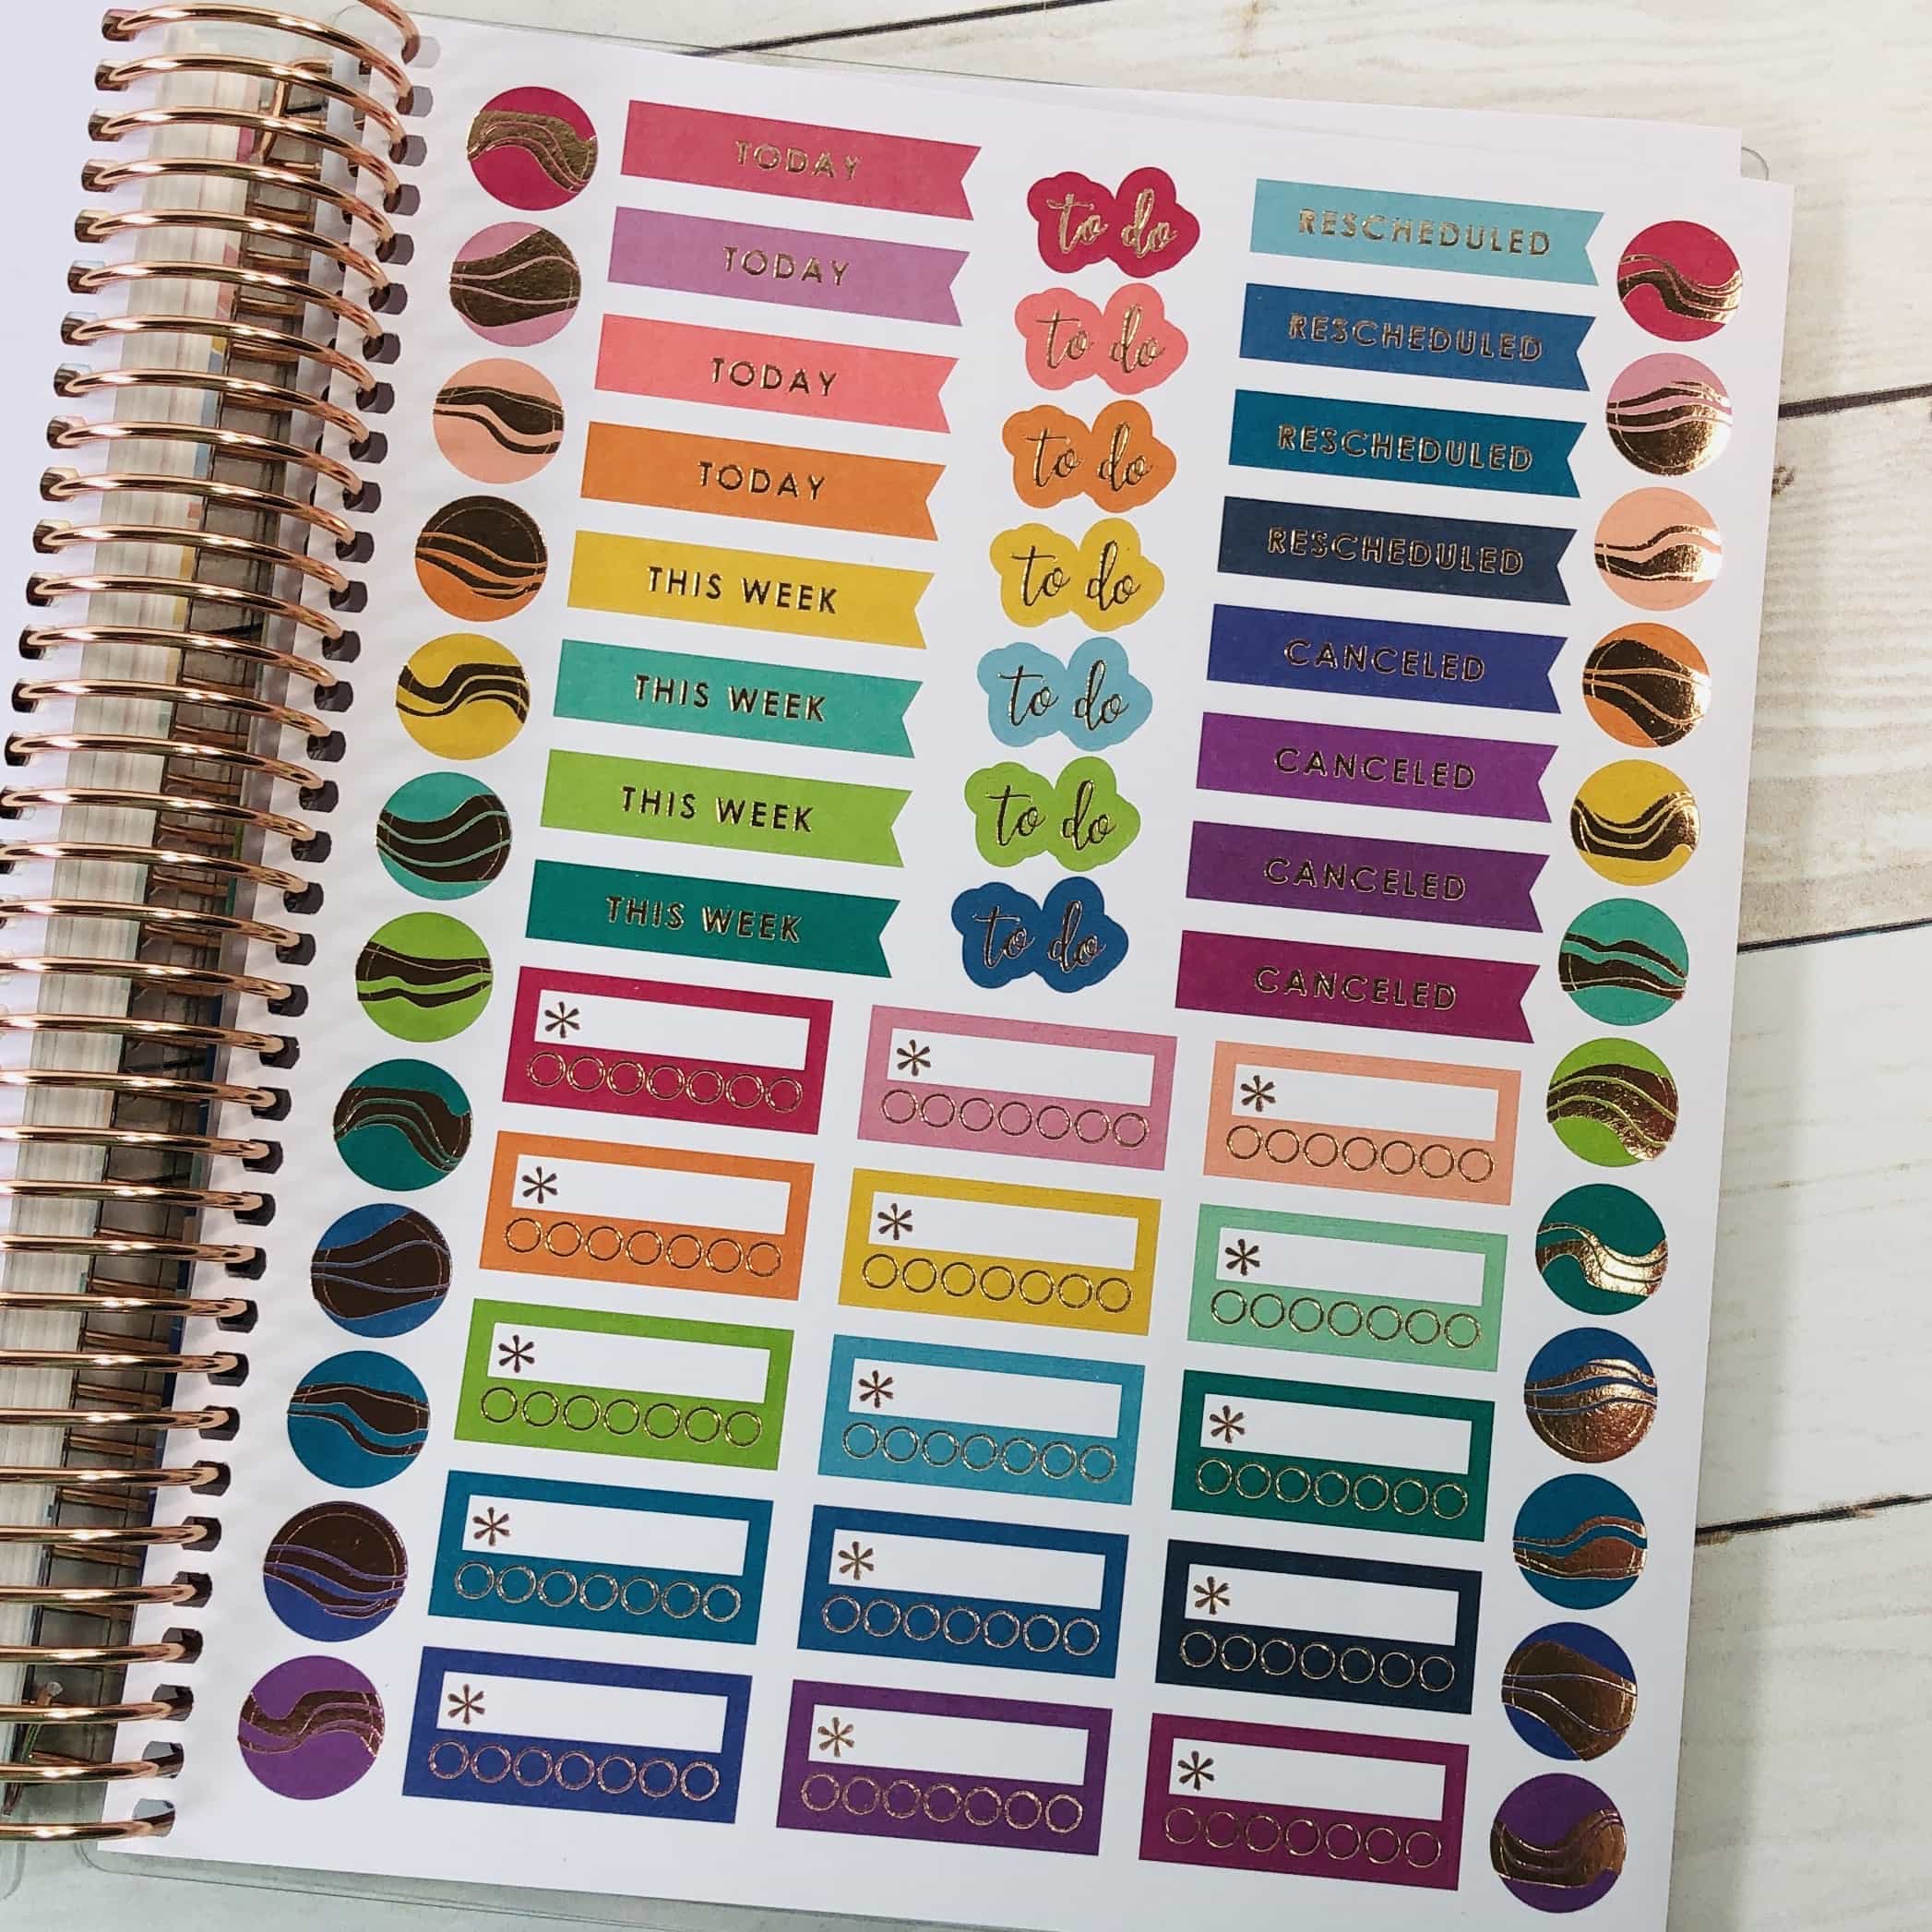 TODAY
TODAY
TODAY
TODAY
THIS WEEK
THIS WEEK
THIS WEEK
THIS WEEK
to do
to do
to do
to do
to do
to do
to do
RESCHEDULED
RESCHEDULED
RESCHEDULED
RESCHEDULED
CANCELED
CANCELED
CANCELED
CANCELED
*
*
*
*
*
*
*
*
*
*
*
*
*
*
*